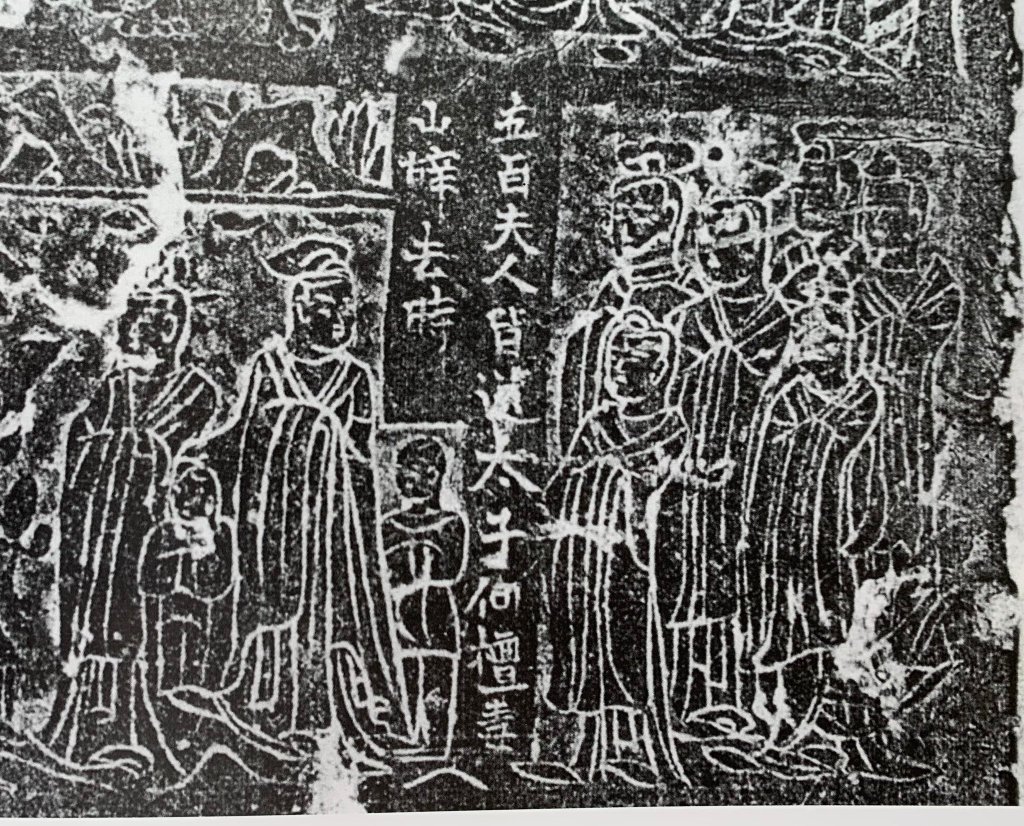 五百夫人皆送太子向檀毒
山辭去時